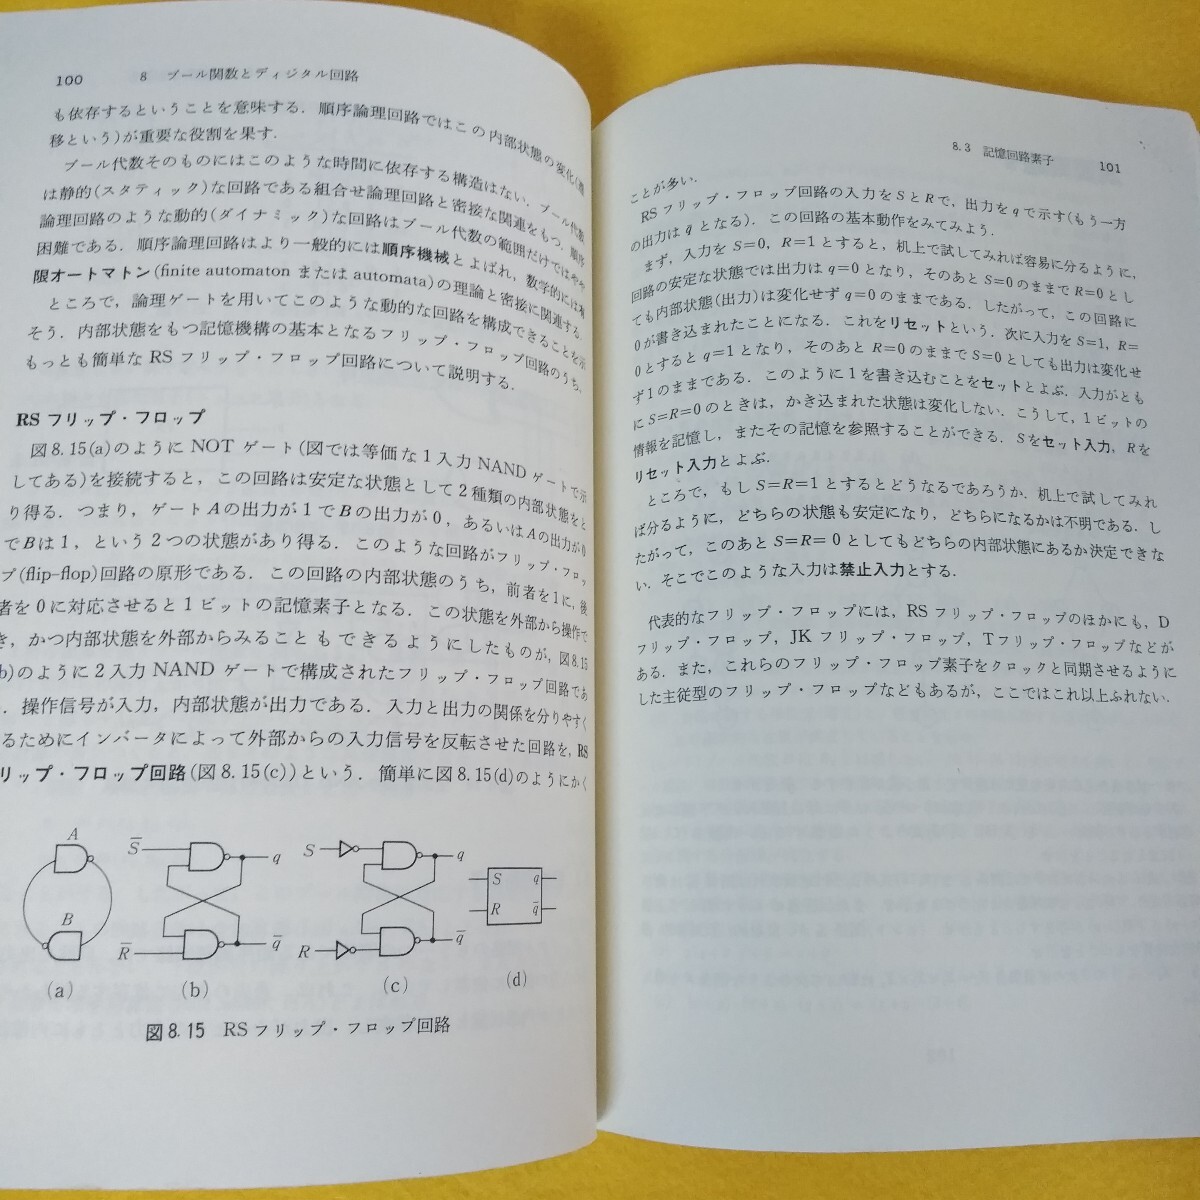 100　8　ブール関数とディジタル回路
も依存するということを意味する．順序論理回路ではこの内部状態の変化(遷
移という)が重要な役割を果す．
ブール代数そのものにはこのような時間に依存する構造はない．ブール代数
は静的(スタティック)な回路である組合せ論理回路と密接な関連をもつ．順序
論理回路のような動的(ダイナミック)な回路はブール代数の範囲だけではやや
困難である．順序論理回路はより一般的には順序機械とよばれ，数学的には有
限オートマトン(finite automaton または automata)の理論と密接に関連する．
ところで，論理ゲートを用いてこのような動的な回路を構成できることを示
そう．内部状態をもつ記憶機構の基本となるフリップ・フロップ回路のうち，
もっとも簡単な RS フリップ・フロップ回路について説明する．
RS フリップ・フロップ
図8.15(a)のように NOT ゲート(図では等価な1入力 NAND ゲートで示
してある)を接続すると，この回路は安定な状態として2種類の内部状態をと
り得る．つまり，ゲートAの出力が1でBの出力が0，あるいはAの出力が0
でBは1，という2つの状態があり得る．このような回路がフリップ・フロッ
プ(flip-flop)回路の原形である．この回路の内部状態のうち，前者を1に，後
者を0に対応させると1ビットの記憶素子となる．この状態を外部から操作で
き，かつ内部状態を外部からみることもできるようにしたものが，図8.15
b)のように2入力 NAND ゲートで構成されたフリップ・フロップ回路であ
．操作信号が入力，内部状態が出力である．入力と出力の関係を分りやすく
るためにインバータによって外部からの入力信号を反転させた回路を，RS
リップ・フロップ回路(図8.15(c))という．簡単に図8.15(d)のようにかく
A
B
(a)
S̅
R̅
q
q̅
(b)
S
R
q
q̅
(c)
S
R
q
q̅
(d)
図8.15　RS フリップ・フロップ回路
8.3　記憶回路素子　101
ことが多い．
RS フリップ・フロップ回路の入力をSとRで，出力をqで示す(もう一方
の出力はq̅となる)．この回路の基本動作をみてみよう．
まず，入力を S=0，R=1とすると，机上で試してみれば容易に分るように，
回路の安定な状態では出力は q=0となり，そのあと S=0のままで R=0とし
ても内部状態(出力)は変化せず q=0のままである．したがって，この回路に
0が書き込まれたことになる．これをリセットという．次に入力を S=1，R=
0とすると q=1となり，そのあと R=0のままで S=0としても出力は変化せ
ず1のままである．このように1を書き込むことをセットとよぶ．入力がとも
に S=R=0のときは，かき込まれた状態は変化しない．こうして，1ビットの
情報を記憶し，またその記憶を参照することができる．Sをセット入力，Rを
リセット入力とよぶ．
ところで，もし S=R=1とするとどうなるであろうか．机上で試してみれ
ば分るように，どちらの状態も安定になり，どちらになるかは不明である．し
たがって，このあと S=R=0としてもどちらの内部状態にあるか決定できな
い．そこでこのような入力は禁止入力とする．
代表的なフリップ・フロップには，RS フリップ・フロップのほかにも，D
フリップ・フロップ，JK フリップ・フロップ，Tフリップ・フロップなどが
ある．また，これらのフリップ・フロップ素子をクロックと同期させるように
した主従型のフリップ・フロップなどもあるが，ここではこれ以上ふれない．